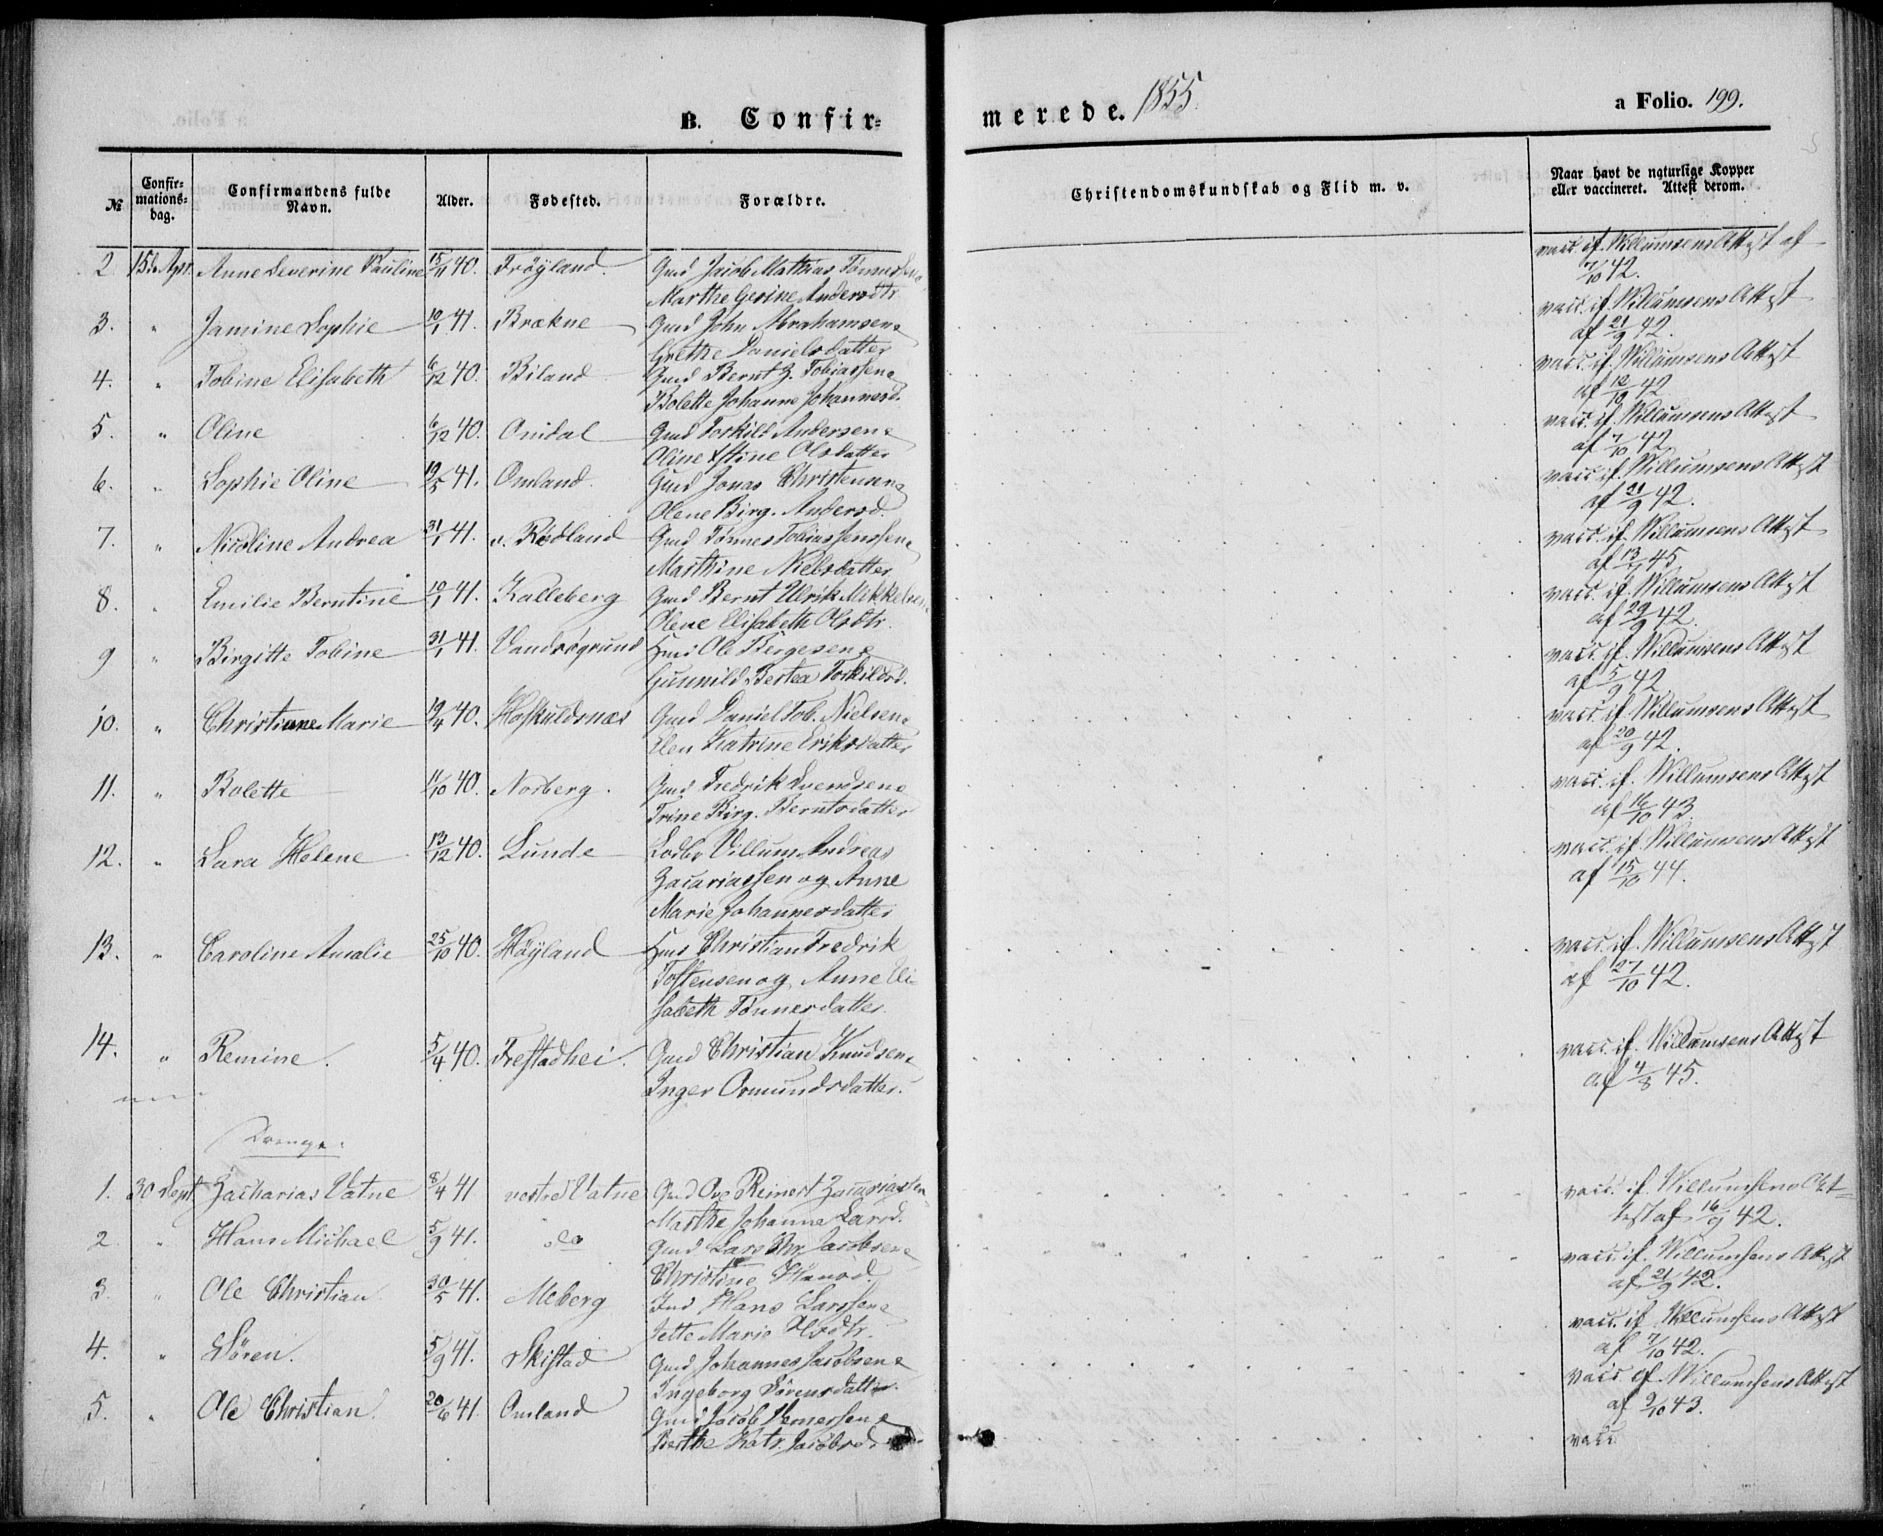 B. Confir-
merede. 1855.
a Folio. 199.
№
Confir-
mations-
dag.
Confirmandens fulde
Navn.
Alder.
Fødested.
Forældre.
Christendomskundskab og Flid m. v.
Naar havt de naturlige Kopper
eller vaccineret. Attest derom.
2. 15de Apr. Anne Severine Pauline 15/11 40. Frøyland. Gmd Jacob Mathias Tønnessen
Marthe Gesine Andersdtr.
vacc. if. Willumsens Attest af
7/10 42.
3. " Jamine Sophie 10/1 41. Brækne Gmd John Abrahamsen
Grethe Danielsdatter
vacc. if. Willumsens Attest
af 21/9 42.
4. " Tobine Elisabeth 6/12 40. Biland Gmd Bernt G. Tobiassen
Bolette Johanne Johannesd.
vacc. if. Willumsens Attest
af 12/10 42
5. " Oline 6/12 40. Omdal Gmd Torkild Andersen
Oline Stine Olsdatter
vacc. if. Willumsens Attest
af 7/10 42
6. " Sophie Oline 19/5 41. Omland. Gmd Jonas Christensen
Olene Birg. Andersd.
vacc. if. Willumsens Attest
af 21/9 42.
7. " Nicoline Andrea 31/1 41. v. Rødland Gmd Tønnes Tobias Jenssen
Marthine Nielsdatter
vacc. if. Willumsens Attest
af 13/9 45.
8. " Emilie Berntine 10/1 41. Kalleberg Gmd Bernt Ulrik Mikkelsen
Olene Elisabeth Olsdtr.
vacc. if. Willumsens Attest
af 29/9 42.
9 " Birgitte Tobine 31/1 41. Vandsøgrund Hmd Ole Børgesen
Gunnild Bertea Torkildsd.
vacc. if. Willumsens Attest
af 5/9 42
10. " Christiane Marie 19/4 40. Høskuldsnæs Gmd Daniel Tob. Nielsen
Elen Katrine Eriksdatter
vacc. if. Willumsens Attest
af 20/9 42.
11. " Bolette 11/10 40. Norberg. Gmd Fredrik Svendsen
Trine Birg. Berntsdatter
vacc. if. Willumsens Attest
af 16/10 43.
12. " Sara Helene 13/12 40. Lunde Villum Andreas
Zacariassen og Anne
Marie Johannesdatter
vacc. if. Willumsens Attest
af 15/10 44.
13. " Caroline Amalie 25/10 40. Høyland Hmd Christian Fredrik
Tostensen og Anne Eli-
sabeth Tønnesdatter.
vacc. if. Willumsens Attest
af 27/10 42.
14. " Remine. 5/4 40. Frestadhei. Gmd Christian Knudsen
Inger Osmundsdatter.
vacc. if. Willumsens Attest
af 4/8 45.
Drenge.
1. 30 Sept Zacharias Vatne 8/4 41 vestre Vatne Gmd Ove Reinert Zacariassen
Marthe Johanne Larsd.
vacc. if. Willumsens At-
test af 16/9 42.
2 " Hans Michael 5/9 41. do Gmd Lars Chr. Jacobsen
Christine Hansd.
vacc. if. Willumsens Attest
af 21/9 42.
3. " Ole Christian 30/5 41. Meberg Ind Hans Larssen
Jette Marie Olsdtr.
vacc. if. Willumsens Attest
af 7/10 42.
4. " Søren. 5/9 41. Skistad Gmd Johannes Jacobsen
Ingeborg Sørensdatter.
vacc. if. Willumsens Attest
af 9/10 43.
5. " Ole Christian. 20/6 41. Omland Gmd Jacob Vernersen
Berthe Katr. Jacobsd.
vacc